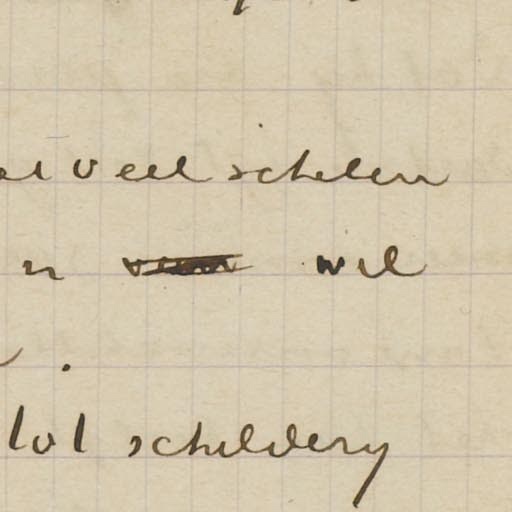 veel schelen
n wil
tot schildery